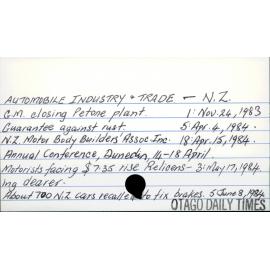 AUTOMOBILE INDUSTRY & TRADE — N.Z.
G.M. closing Petone plant. 1: Nov. 24, 1983
Guarantee against rust. 5: Apr. 4, 1984.
N.Z. Motor Body Builders' Assoc. Inc. 18: Apr. 15, 1984.
Annual Conference, Dunedin, 14-18 April.
Motorists facing $735 rise 3: May 17, 1984.
ing dearer.
About 700 N.Z. cars recalled to fix brakes. 5: June 8, 1984
OTAGO DAILY TIMES